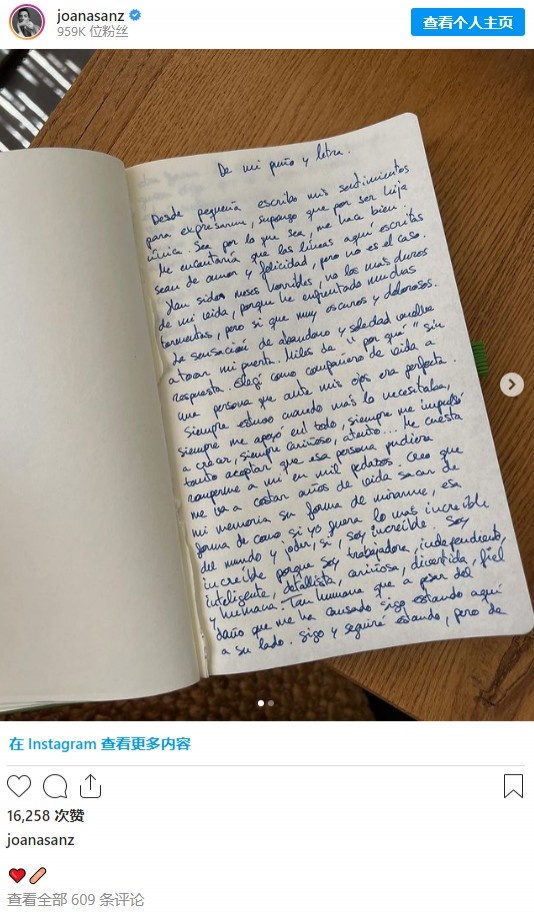 joanasanz
959K 位粉丝
查看个人主页
De mi puño y letra.
Desde pequeña escribo mis sentimientos
para expresarme, supongo que por ser hija
única. Sea por lo que sea, me hace bien.
Me encantaría que las líneas aquí escritas
sean de amor y felicidad, pero no es el caso.
Han sido meses horribles, no los más duros
de mi vida, porque he enfrentado muchas
tormentas, pero sí que muy oscuros y dolorosos.
La sensación de abandono y soledad vuelve
a tocar mi puerta. Miles de "por qué" sin
respuesta. Elegí como compañero de vida a
una persona que ante mis ojos era perfecta.
Siempre estuvo cuando más lo necesitaba,
siempre me apoyó en todo, siempre me impulsó
a crear, siempre cariñoso, atento... Me cuesta
tanto aceptar que esa persona pudiera
romperme a mí en mil pedazos. Creo que
me va a costar años de vida sacar de
mi memoria su forma de mirarme, esa
forma de como si yo fuera lo más increíble
del mundo y joder, sí, soy increíble. Soy
increíble porque soy trabajadora, independiente,
inteligente, detallista, cariñosa, divertida, fiel
y humana. Tan humana que a pesar del
daño que me ha causado sigo estando aquí
a su lado. Sigo y seguiré estando, pero de
在 Instagram 查看更多内容
16,258 次赞
joanasanz
查看全部 609 条评论